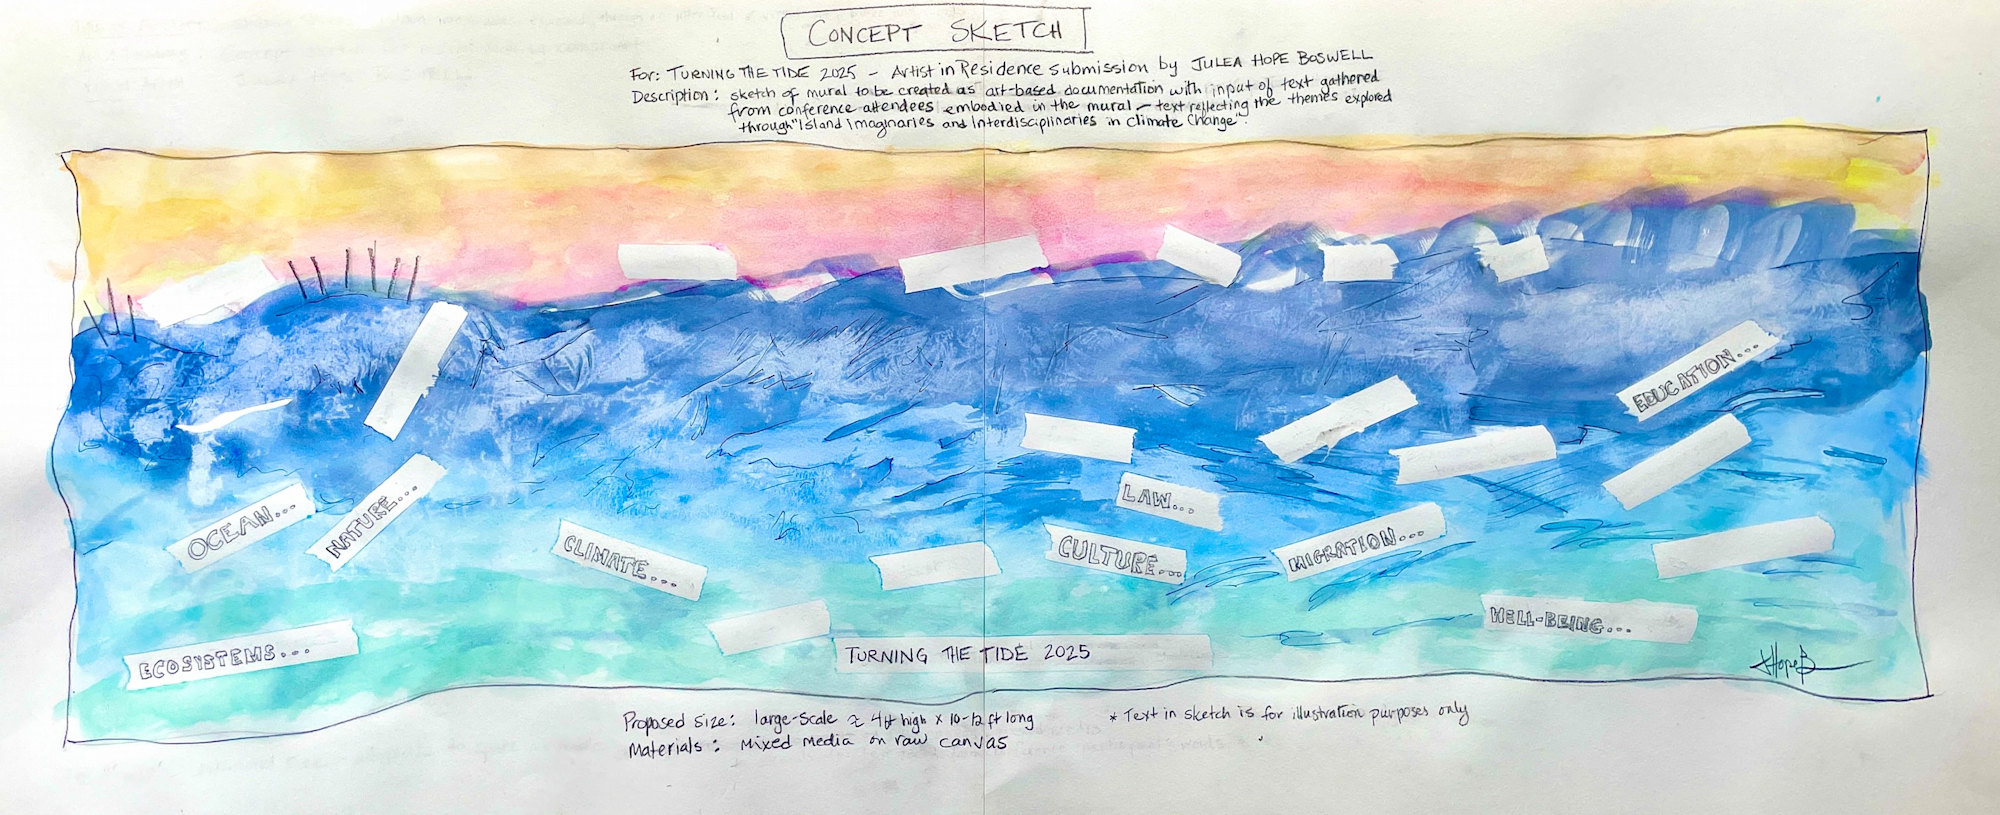 CONCEPT SKETCH
For: TURNING THE TIDE 2025 – Artist in Residence Submission by JULEA HOPE BOSWELL
Description: sketch of mural to be created as art-based documentation with input of text gathered
from conference attendees embodied in the mural – text reflecting the themes explored
through "Island Imaginaries and Interdisciplinaries in Climate Change".
EDUCATION...
OCEAN...
NATURE...
LAW...
CLIMATE...
CULTURE...
MIGRATION...
WELL-BEING...
ECOSYSTEMS...
TURNING THE TIDE 2025
JHopeB
Proposed Size: large-scale ≈ 4ft high x 10-12 ft long
Materials: Mixed Media on raw canvas
* Text in sketch is for illustration purposes only